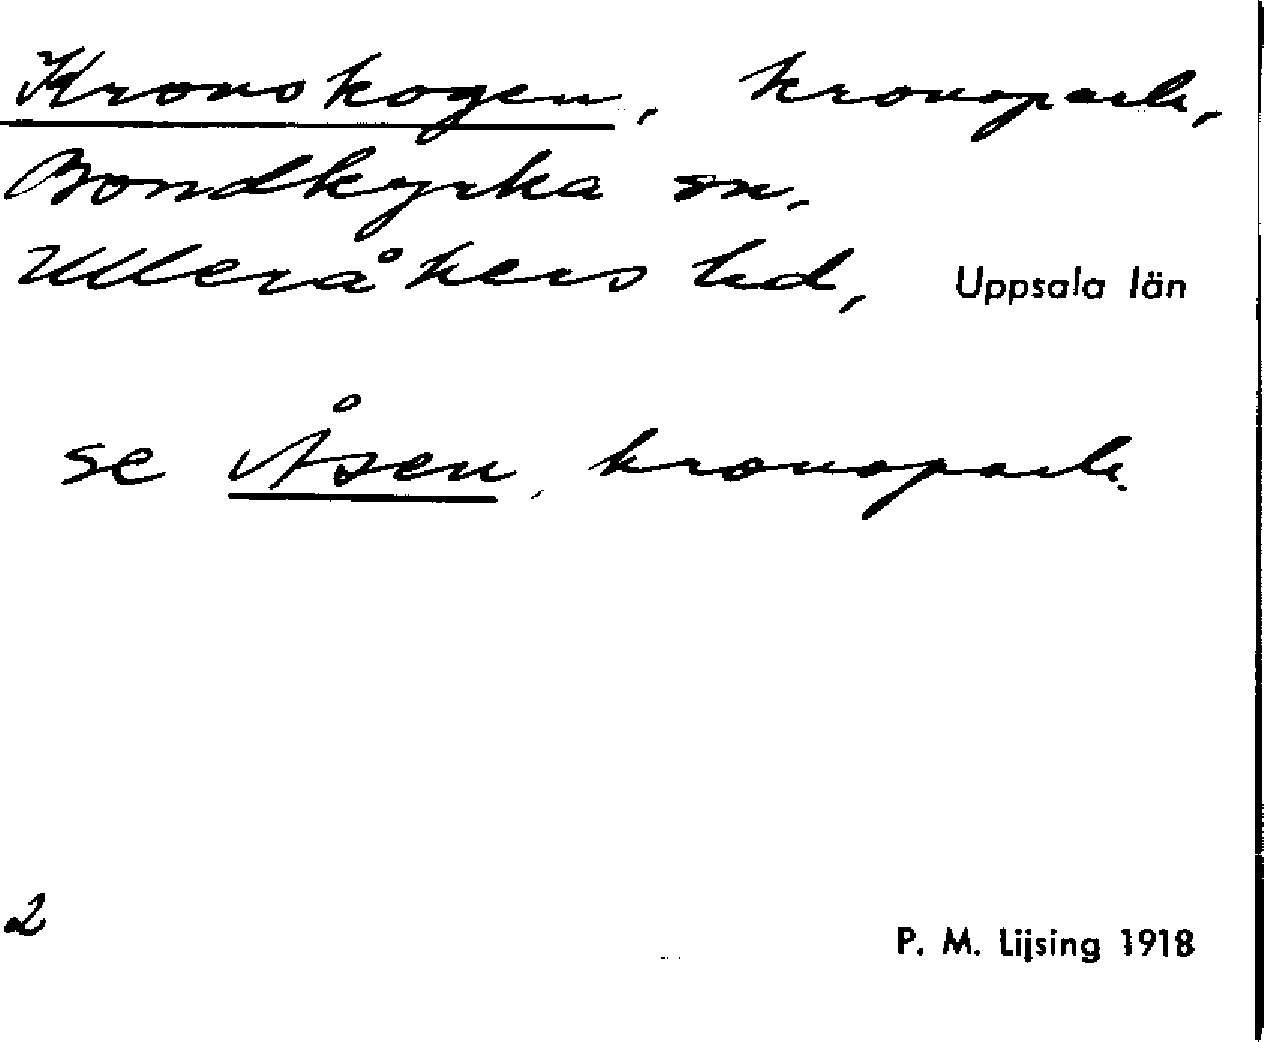 Kronoskogen, kronopark,
Bondkyrka sn,
Ulleråkers hd, Uppsala län
se Åsen, kronopark.
2
P. M. Lijsing 1918